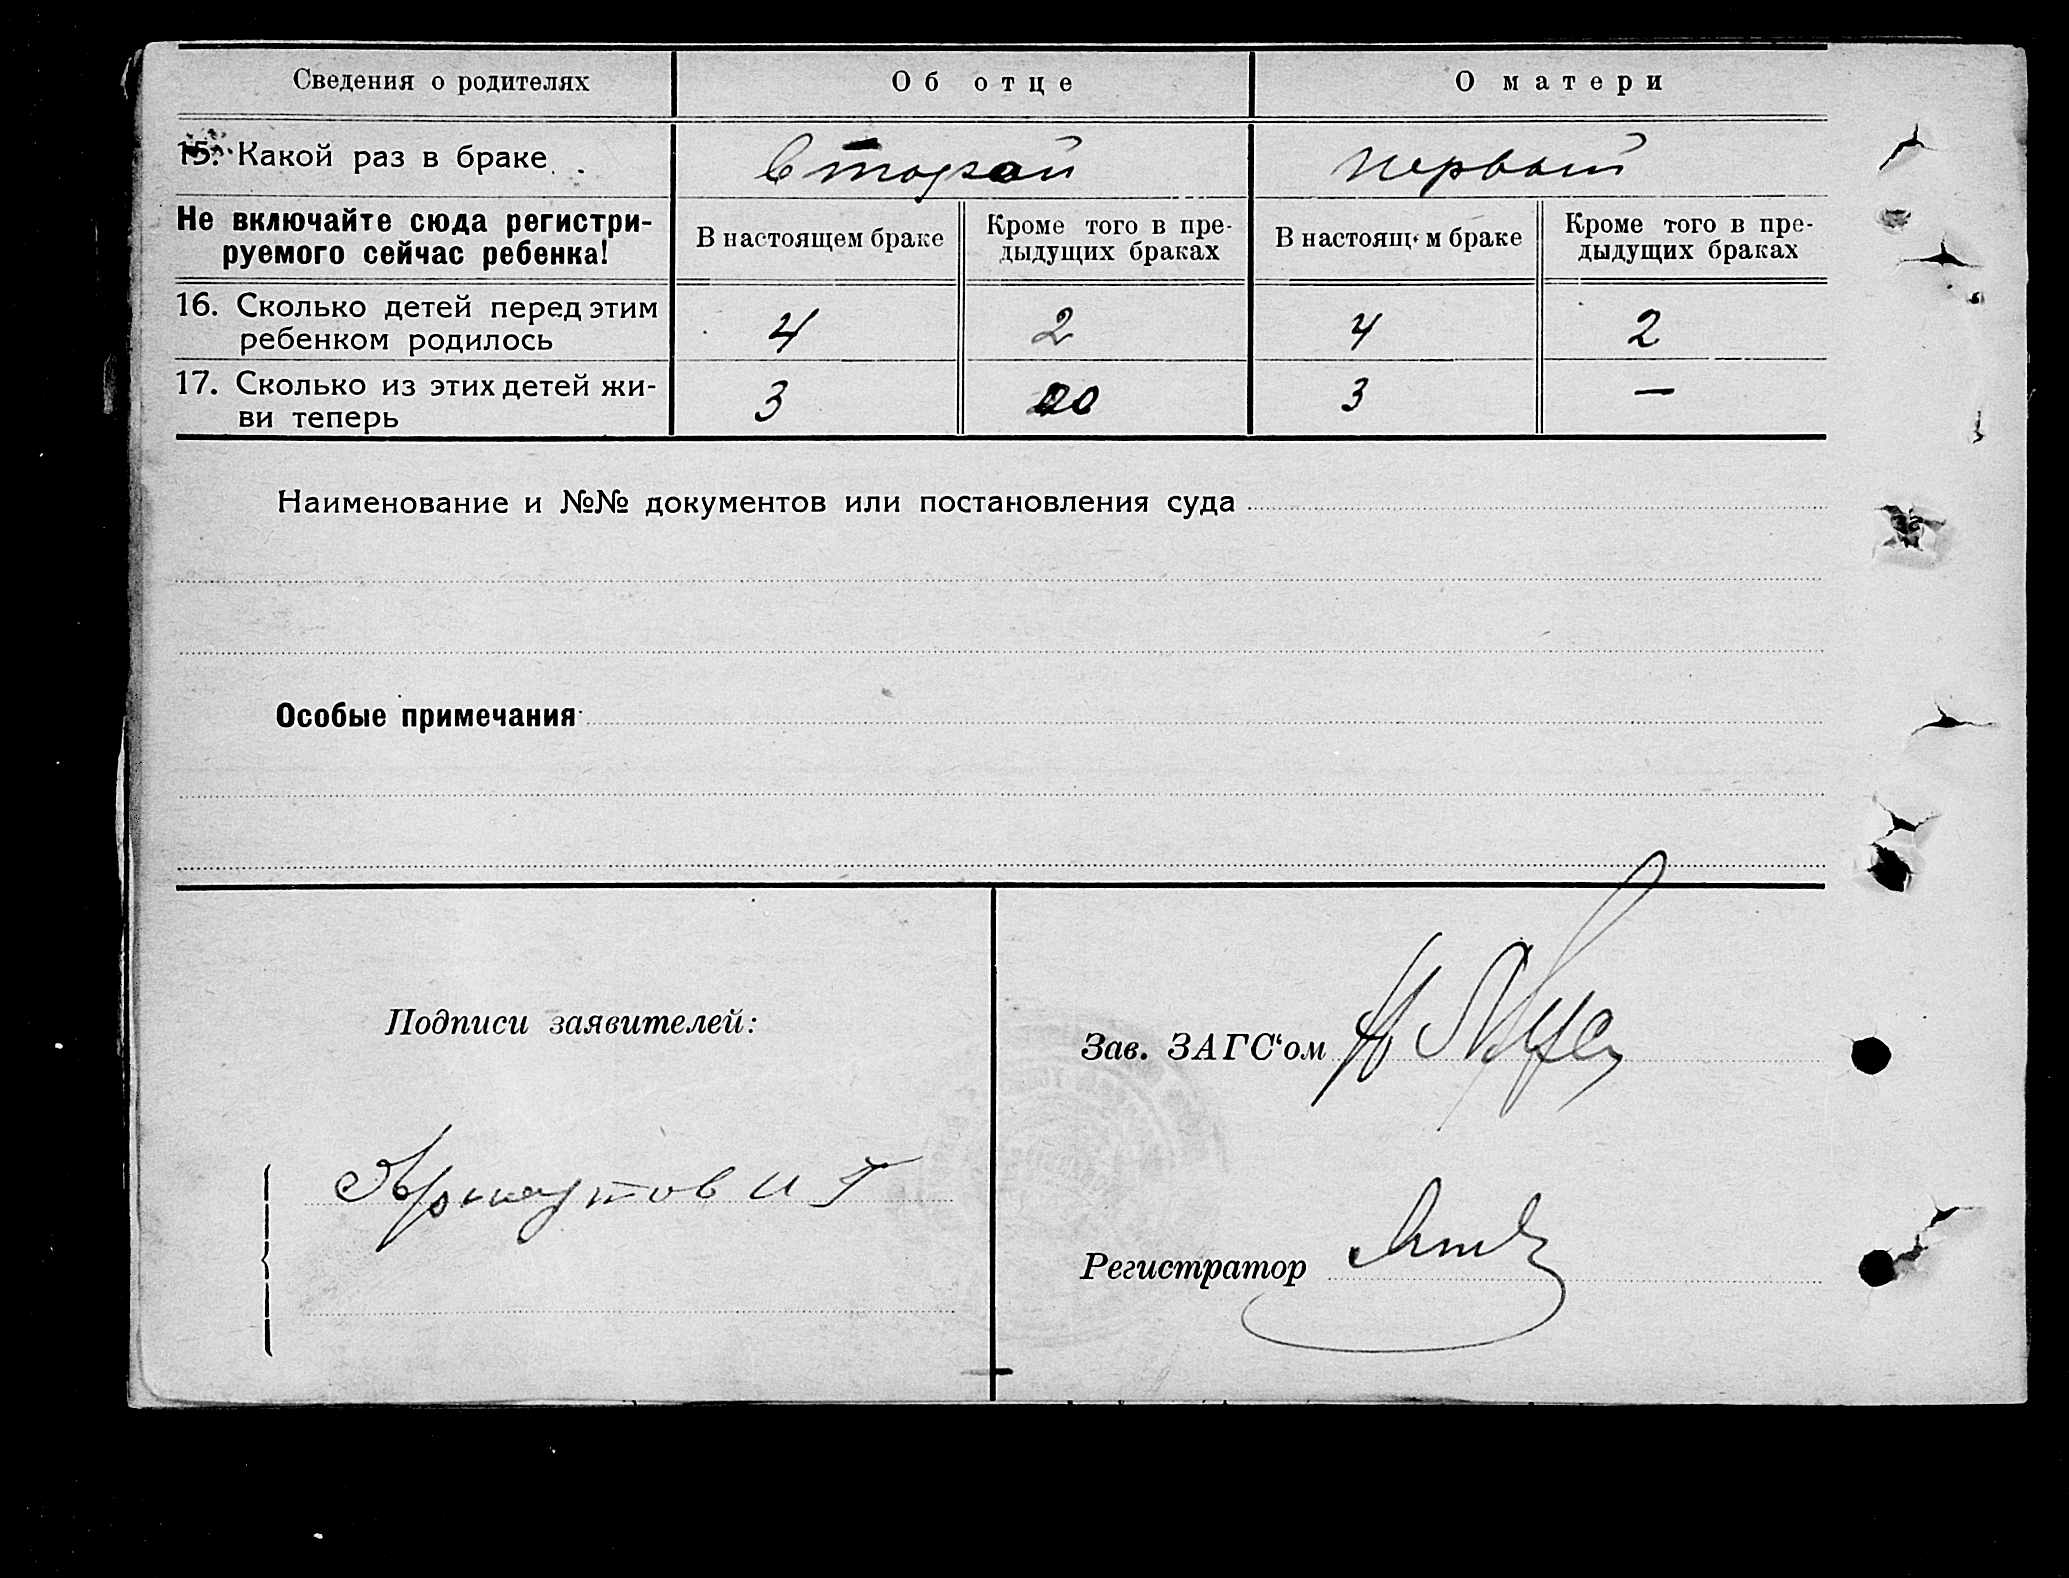 Сведения о родителях Об отце О матери
15. Какой раз в браке второй первый
Не включайте сюда регистри-
руемого сейчас ребенка!
В настоящем браке
Кроме того в пре-
дыдущих браках
В настоящем браке
Кроме того в пре-
дыдущих браках
16. Сколько детей перед этим
ребенком родилось
4 2 4 2
17. Сколько из этих детей жи-
ви теперь
3 3 —
Наименование и №№ документов или постановления суда
Особые примечания
Подписи заявителей:
Зав. ЗАГС‘ом
И Г
Регистратор